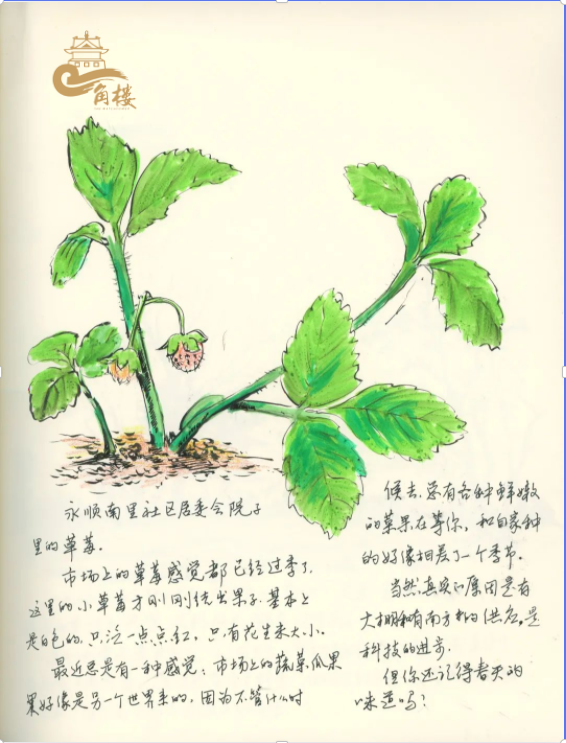 角楼
永顺南里社区居委会院子
里的草莓。
市场上的草莓感觉都已经过季了,
这里的小草莓才刚刚结出果子.基本上
是白色的,只泛一点点红,只有花生米大小。
最近总是有一种感觉:市场上的蔬菜瓜果
好像是另一个世界来的,因为不管什么时
候去,总有各种鲜嫩
的菜果在等你,和自家种
的好像相差了一个季节.
当然,真实的原因是有
大棚和有南方的供应,是
科技的进步.
但你还记得春天的
味道吗?